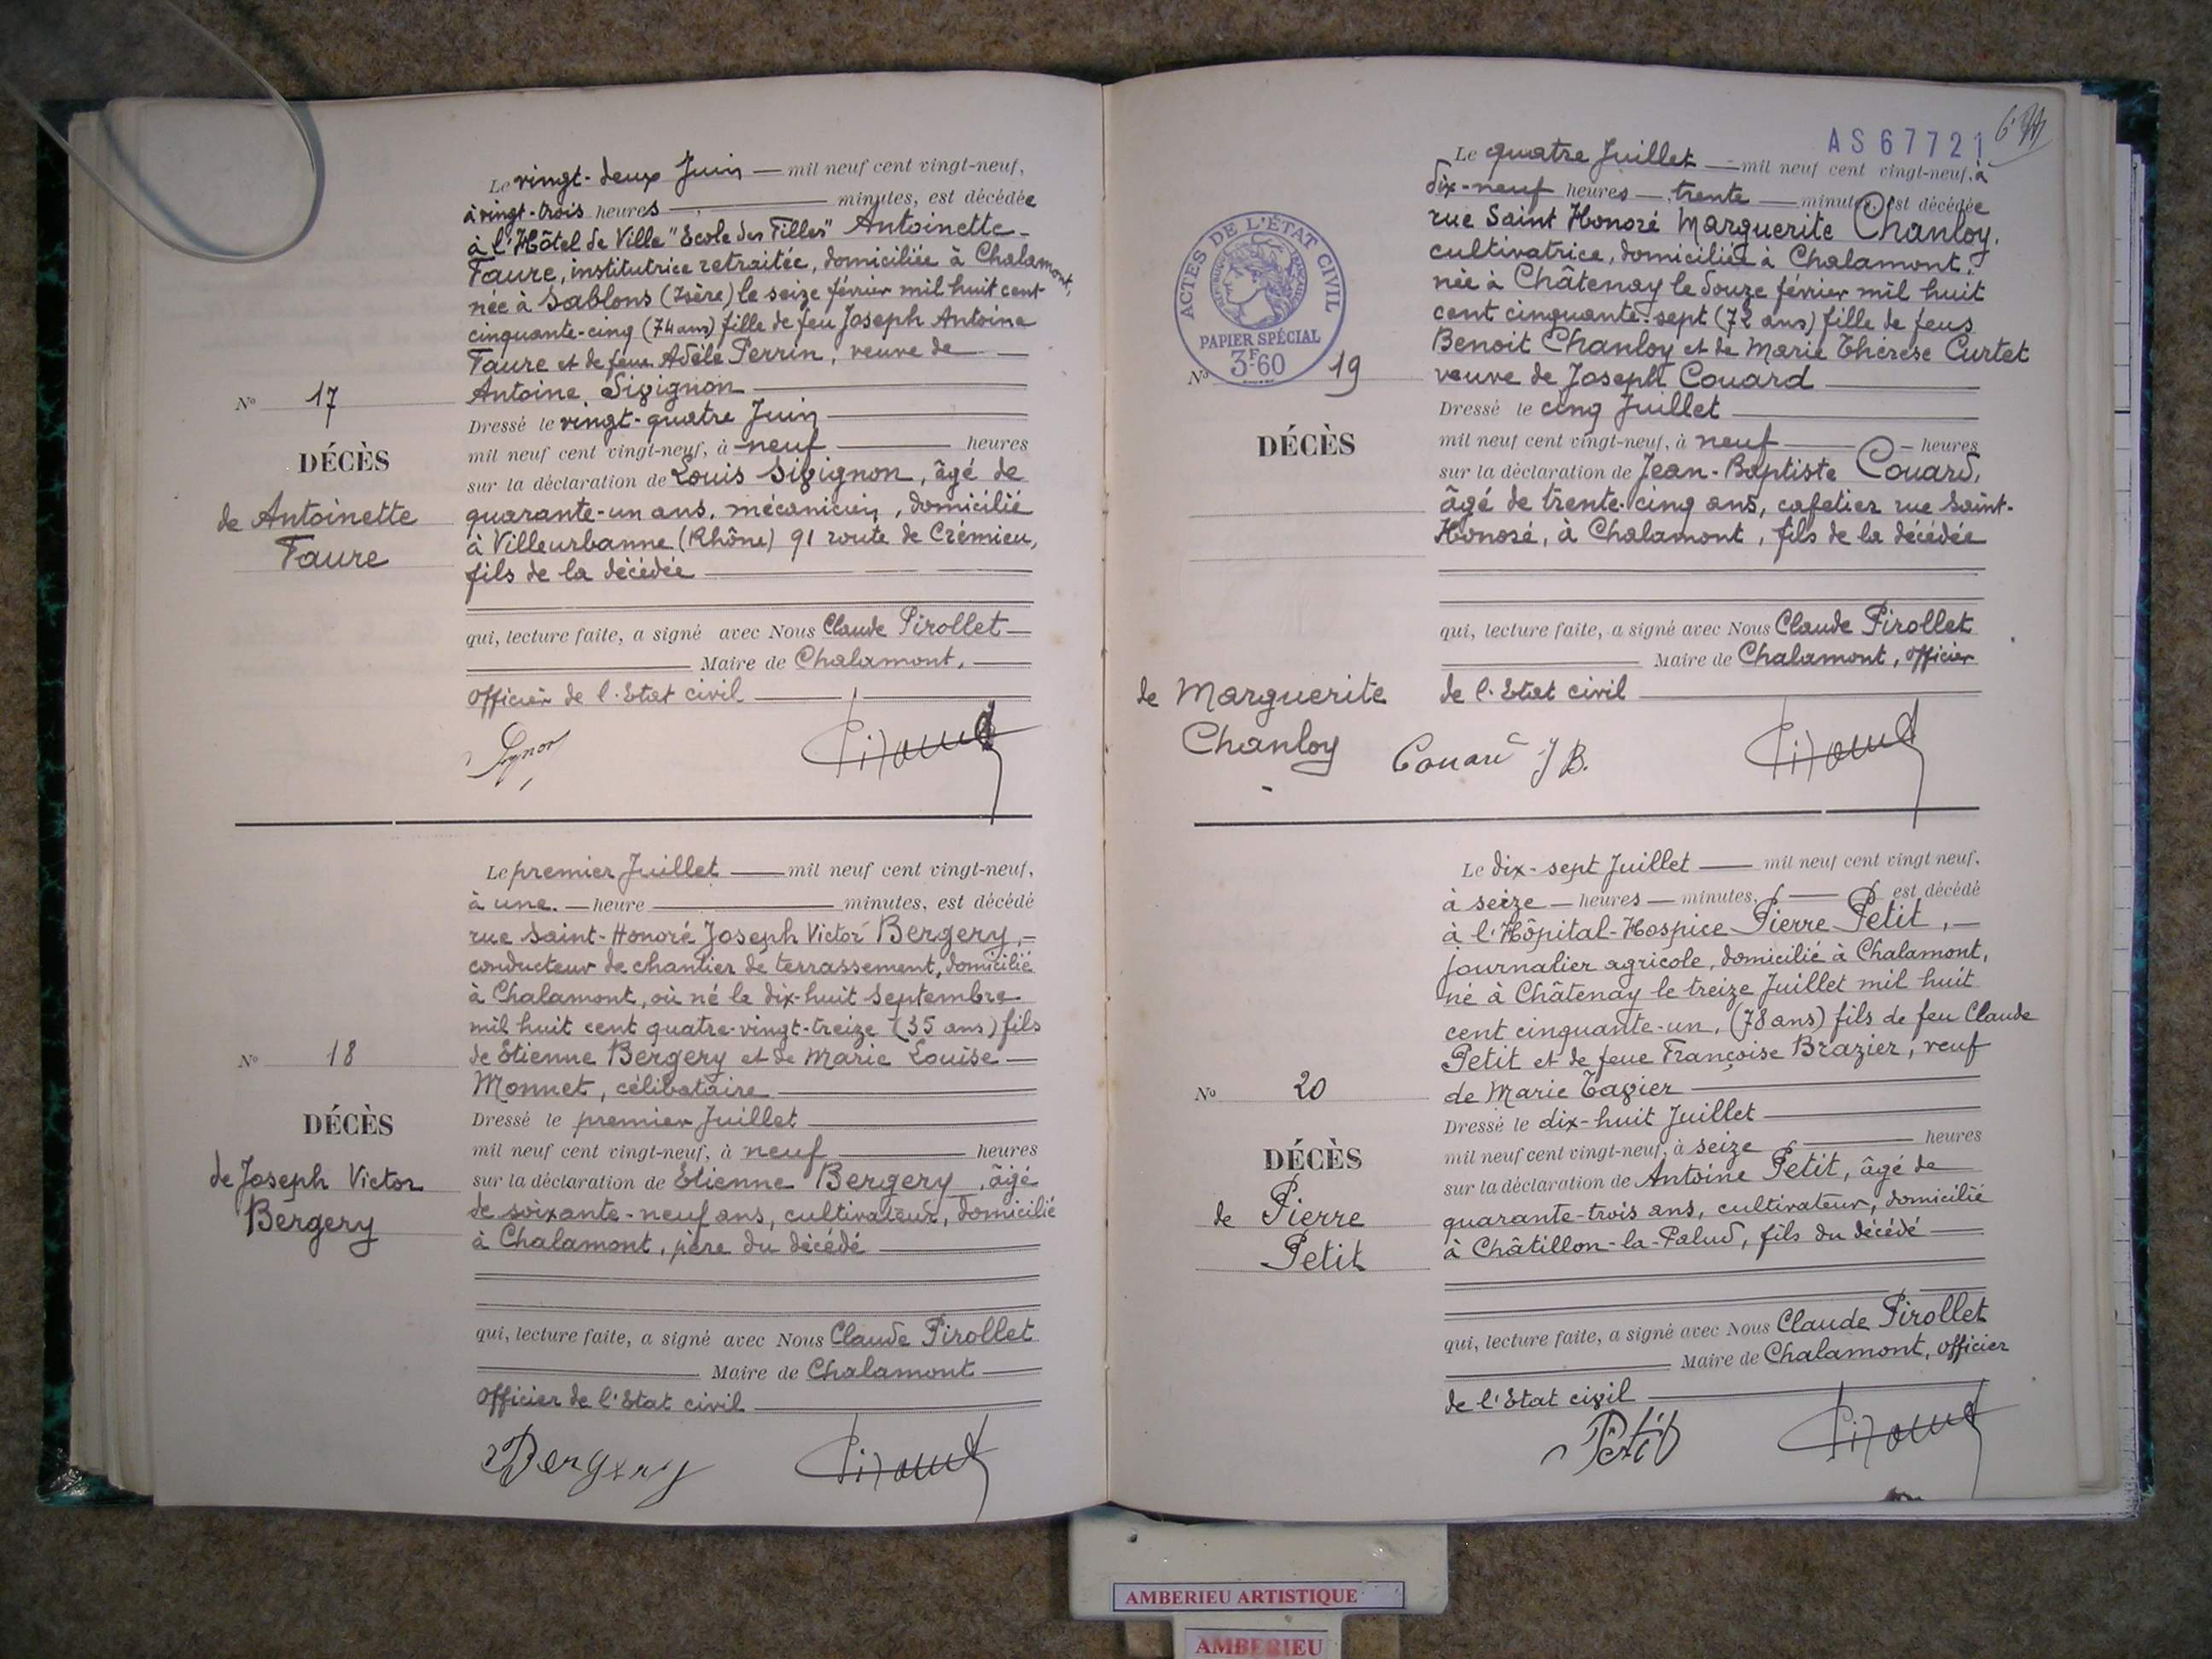 Le vingt-deux Juin — mil neuf cent vingt-neuf,
à vingt-trois heures — minutes, est décédée
à l'Hôtel de Ville "Ecole des Filles" Antoinette
Faure, institutrice retraitée, domiciliée à Chalamont,
née à Sablons (Isère) le seize février mil huit cent
cinquante-cinq (74 ans) fille de feu Joseph Antoine
Faure et de feue Adèle Perrin, veuve de
Antoine Sivignon
Nº 17
DÉCÈS
de Antoinette
Faure
Dressé le vingt-quatre Juin
mil neuf cent vingt-neuf, à neuf heures
sur la déclaration de Louis Sivignon, âgé de
quarante-un ans, mécanicien, domicilié
à Villeurbanne (Rhône) 91 route de Crémieu,
fils de la décédée
qui, lecture faite, a signé avec Nous Claude Pirollet
Maire de Chalamont,
Officier de l'Etat civil
Le premier Juillet — mil neuf cent vingt-neuf,
à une — heure — minutes, est décédé
rue Saint-Honoré Joseph Victor Bergery,
conducteur de chantier de terrassement, domicilié
à Chalamont, où né le dix-huit Septembre
mil huit cent quatre-vingt-treize (35 ans) fils
de Etienne Bergery et de Marie Louise
Monnet, célibataire
Nº 18
DÉCÈS
de Joseph Victor
Bergery
Dressé le premier Juillet
mil neuf cent vingt-neuf, à neuf heures
sur la déclaration de Etienne Bergery, âgé
de soixante-neuf ans, cultivateur, domicilié
à Chalamont, père du décédé
qui, lecture faite, a signé avec Nous Claude Pirollet
Maire de Chalamont
Officier de l'Etat civil
Bergery
AS67721
ACTES DE L'ÉTAT CIVIL
RÉPUBLIQUE FRANÇAISE
PAPIER SPÉCIAL
3F60
Le quatre Juillet — mil neuf cent vingt-neuf, à
dix-neuf heures — trente — minutes, est décédée
rue Saint Honoré Marguerite Chanloy,
cultivatrice, domiciliée à Chalamont,
née à Châtenay le douze février mil huit
cent cinquante-sept (72 ans) fille de feus
Benoit Chanloy et de Marie Thérèse Curtet
veuve de Joseph Couard
Nº 19
DÉCÈS
de Marguerite
Chanloy
Dressé le cinq Juillet
mil neuf cent vingt-neuf, à neuf — heures
sur la déclaration de Jean-Baptiste Couard,
âgé de trente-cinq ans, cafetier rue Saint-
Honoré, à Chalamont, fils de la décédée
qui, lecture faite, a signé avec Nous Claude Pirollet
Maire de Chalamont, officier
de l'Etat civil
Couard J B.
Le dix-sept Juillet — mil neuf cent vingt neuf,
à seize — heures — minutes, — est décédé
à l'Hôpital-Hospice Pierre Petit,
journalier agricole, domicilié à Chalamont,
né à Châtenay le treize Juillet mil huit
cent cinquante-un, (78 ans) fils de feu Claude
Petit et de feue Françoise Brazier, veuf
de Marie Tagier
Nº 20
DÉCÈS
de Pierre
Petit
Dressé le dix-huit Juillet
mil neuf cent vingt-neuf, à seize heures
sur la déclaration de Antoine Petit, âgé de
quarante-trois ans, cultivateur, domicilié
à Châtillon-la-Palud, fils du décédé
qui, lecture faite, a signé avec Nous Claude Pirollet
Maire de Chalamont, officier
de l'Etat civil
Petit
AMBERIEU ARTISTIQUE
AMBERIEU